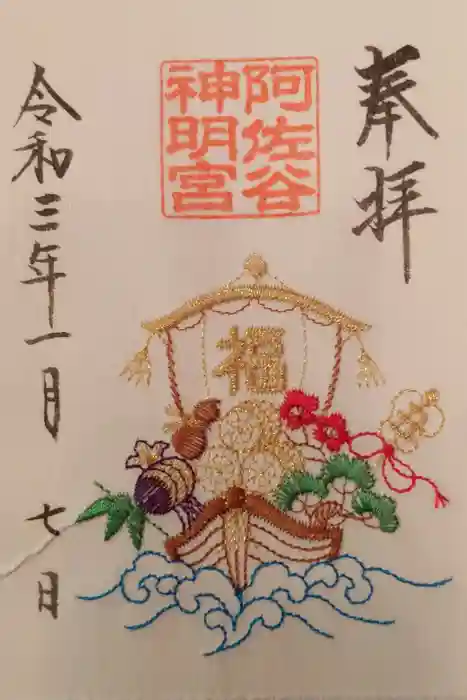 奉拝
阿佐谷
神明宮
福
令和三年一月七日